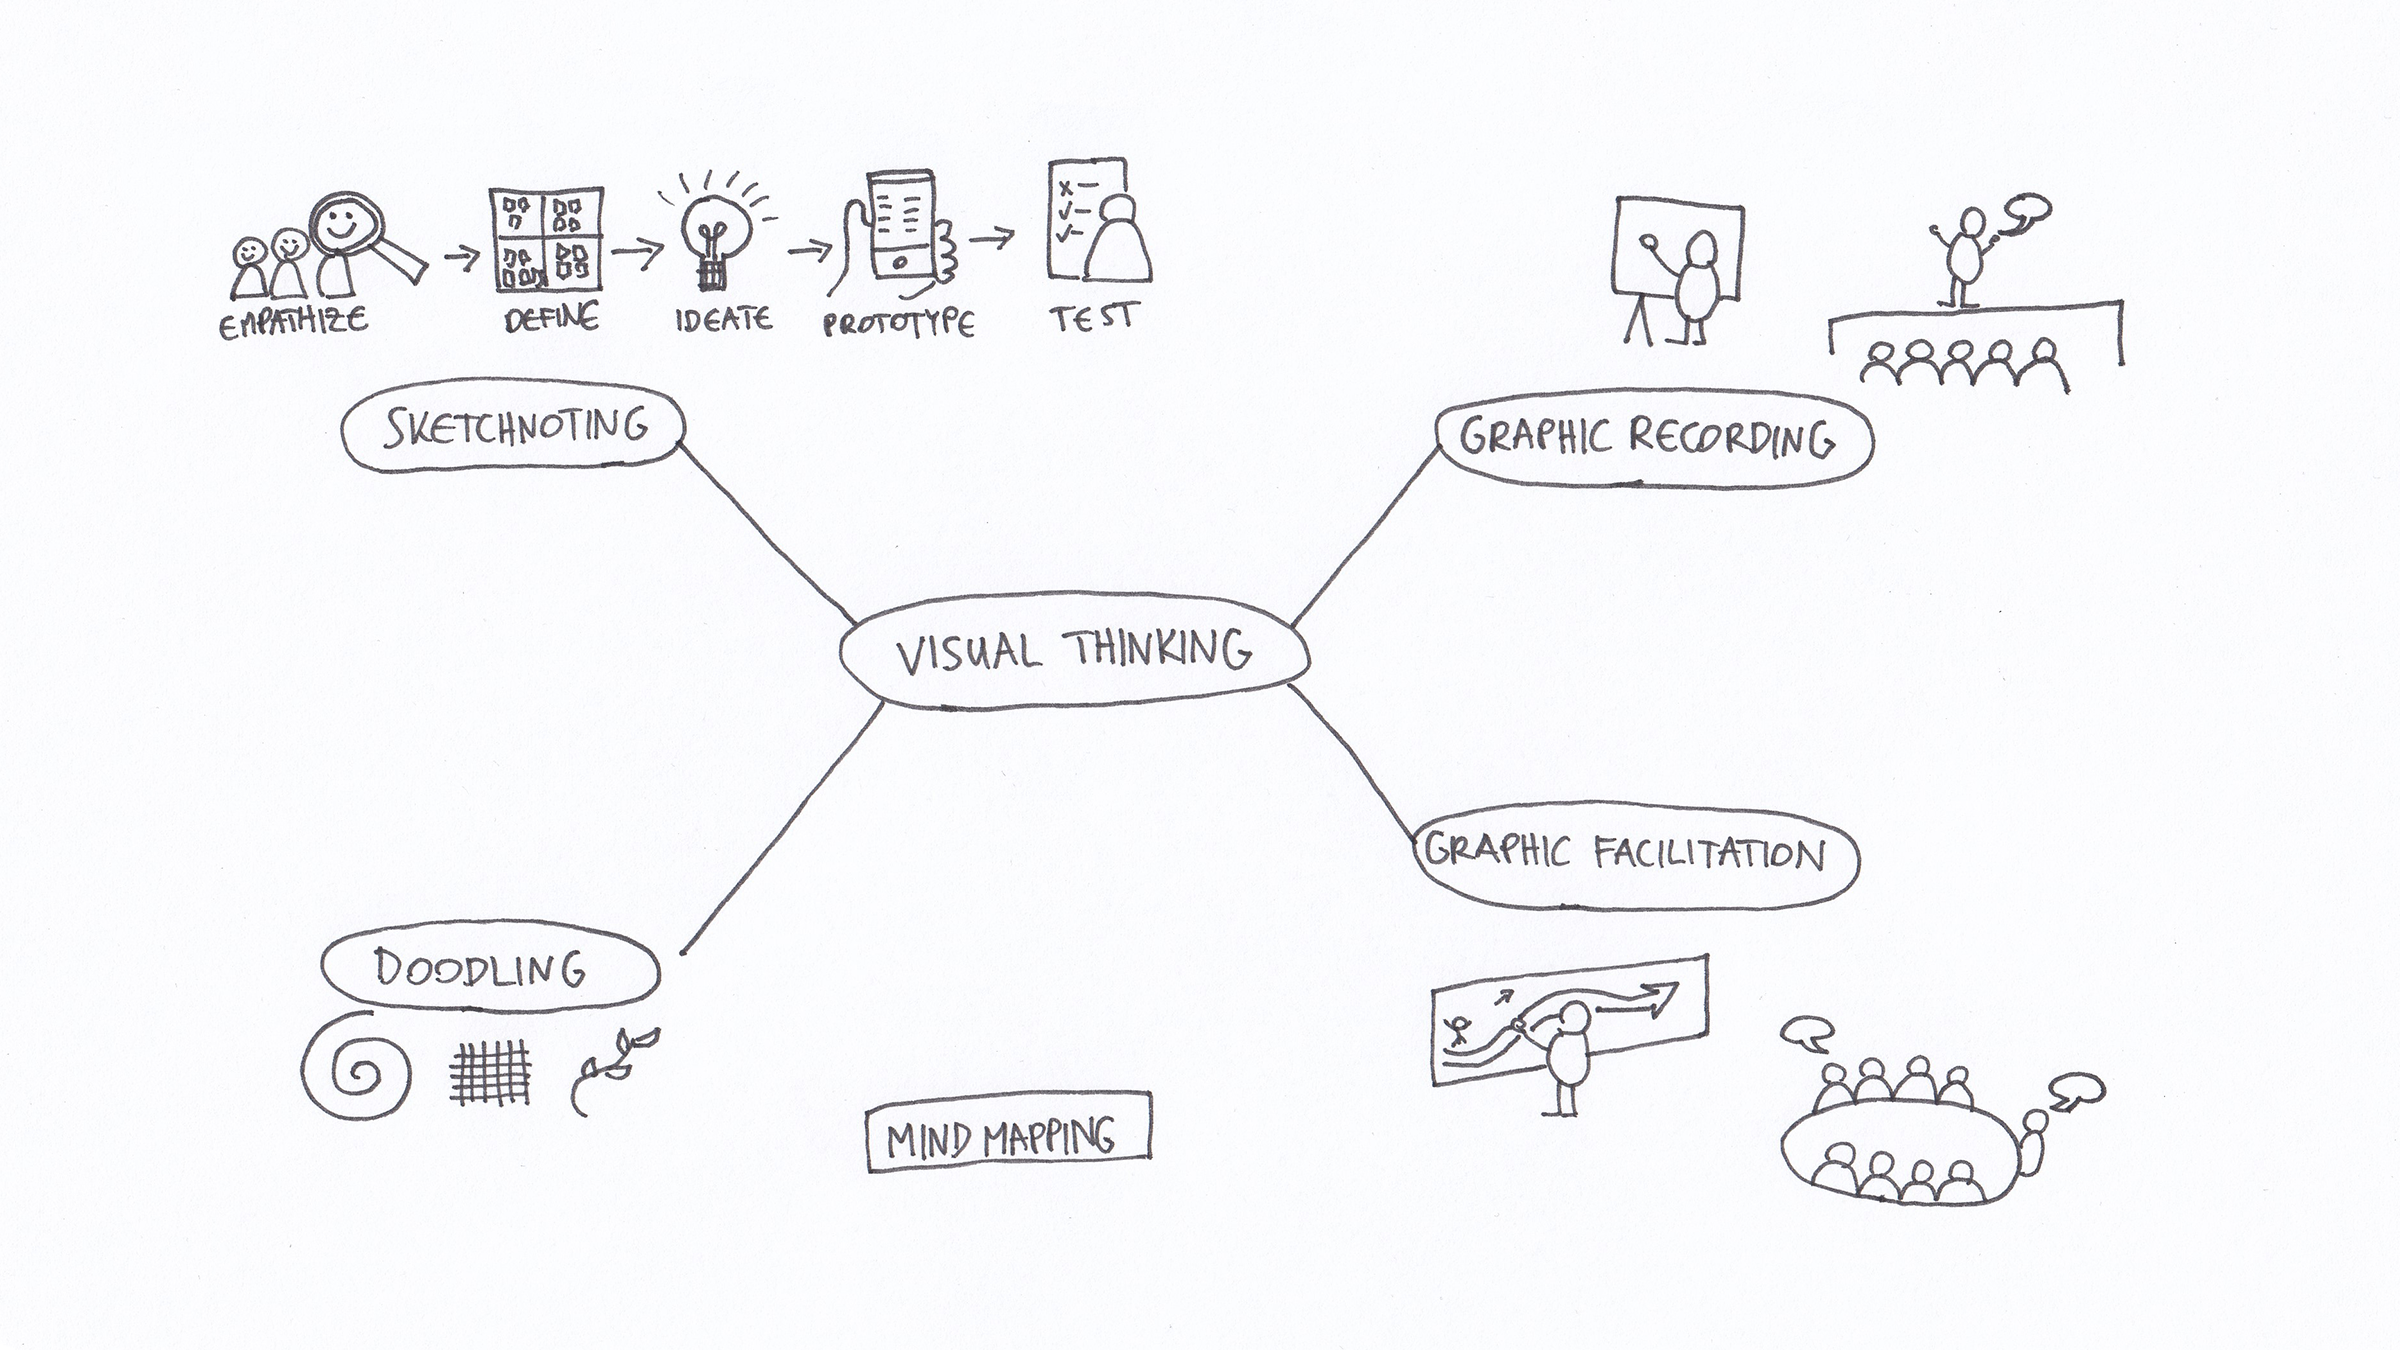 EMPATHIZE
DEFINE
IDEATE
PROTOTYPE
TEST
SKETCHNOTING
GRAPHIC RECORDING
VISUAL THINKING
GRAPHIC FACILITATION
DOODLING
MIND MAPPING